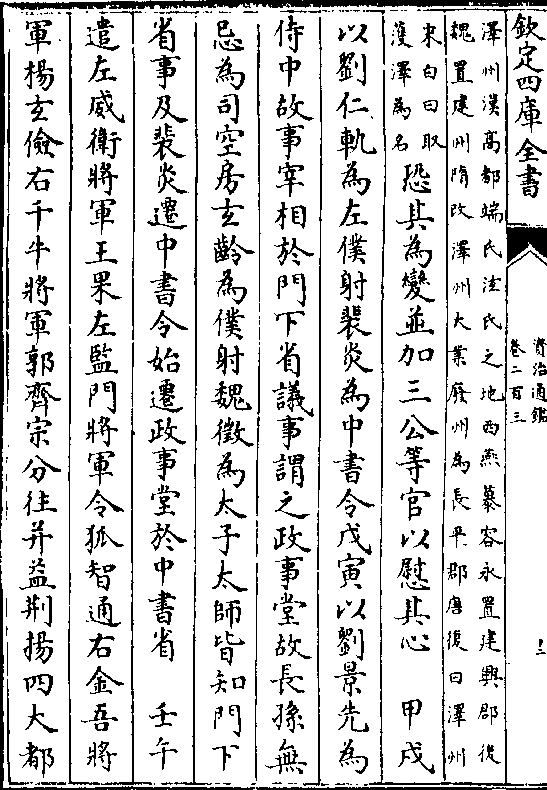 欽定四庫全書
資治通鑑
卷二百三
十二
澤州漢高都端氏泫氏之地西燕慕容永置建興郡後
魏置建州隋改澤州大業廢州為長平郡唐復曰澤州
宋白曰取
濩澤為名
恐其為變並加三公等官以慰其心 甲戌
以劉仁軌為左僕射裴炎為中書令戊寅以劉景先為
侍中故事宰相於門下省議事謂之政事堂故長孫無
忌為司空房玄齡為僕射魏徵為太子太師皆知門下
省事及裴炎遷中書令始遷政事堂於中書省 壬午
遣左威衛將軍王果左監門將軍令狐智通右金吾將
軍楊玄儉右千牛將軍郭齊宗分往并益荊揚四大都